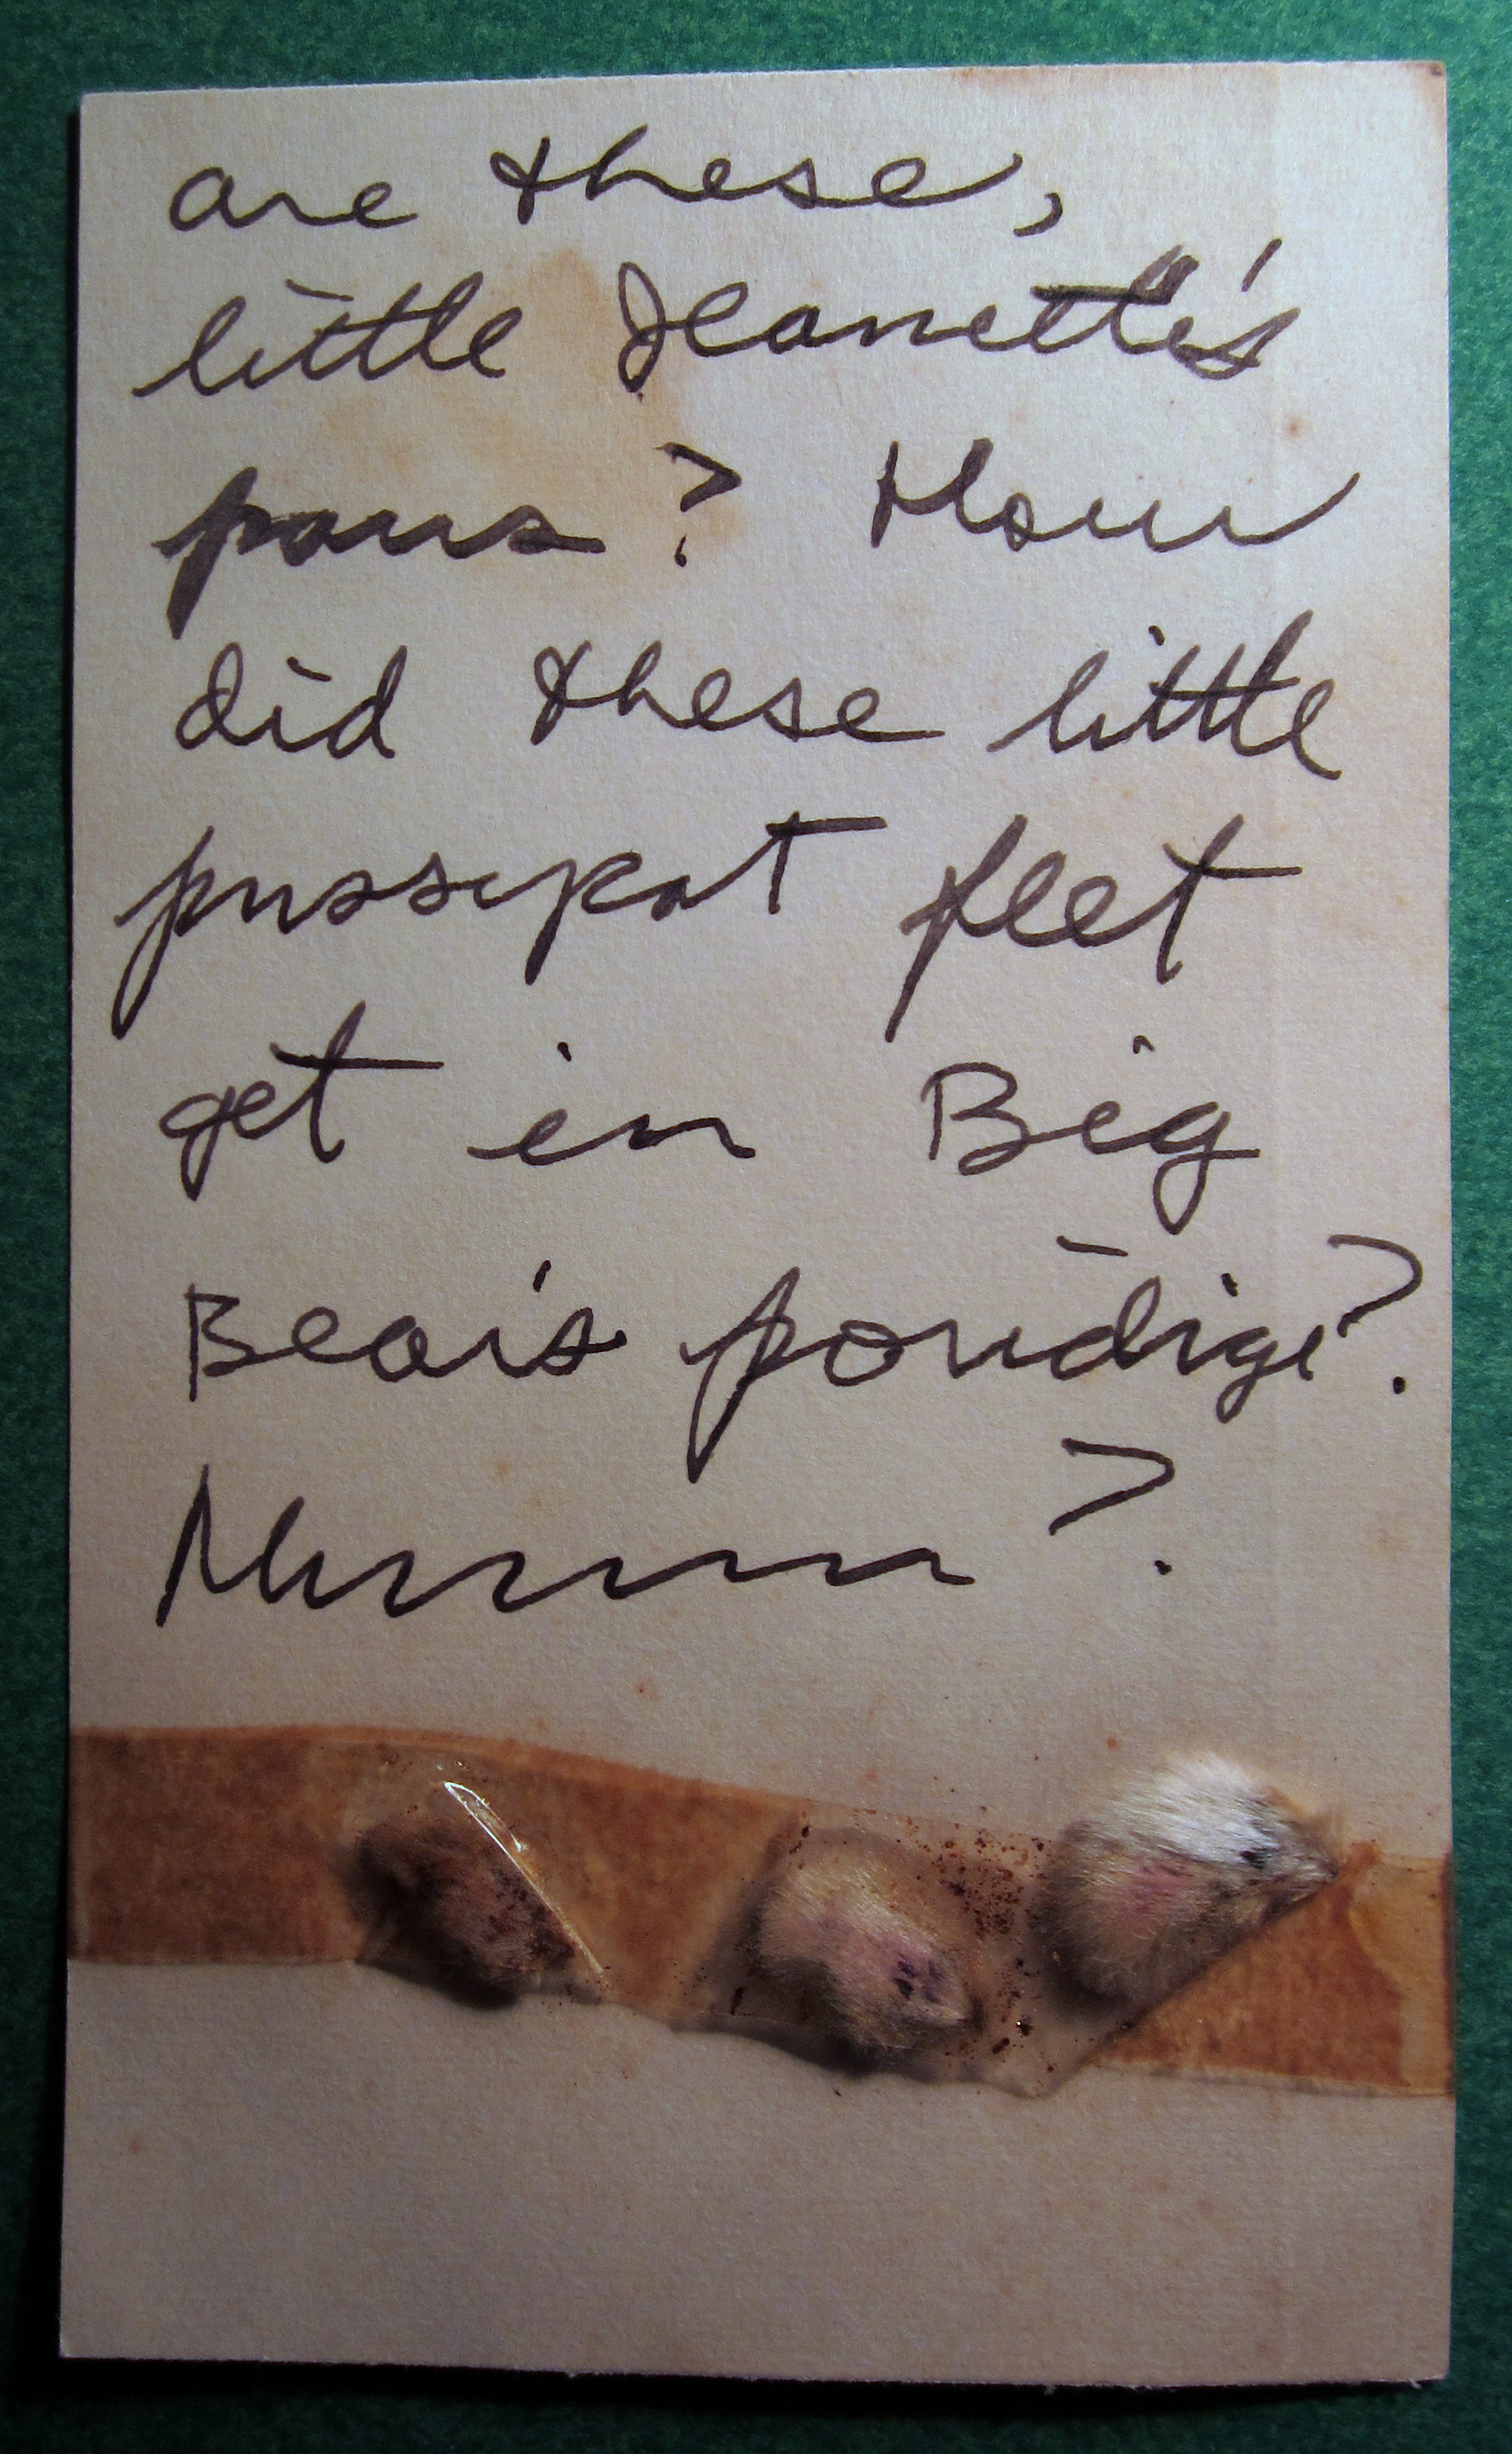 are these,
little Jeanette's
paws? How
did these little
pussycat feet
get in Big
Bear's porridge?
Mmmmm?